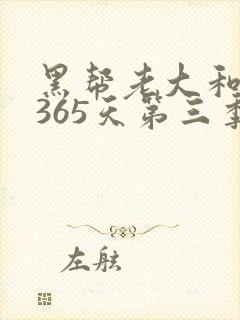 黑帮老大和
365天第三季
左舷